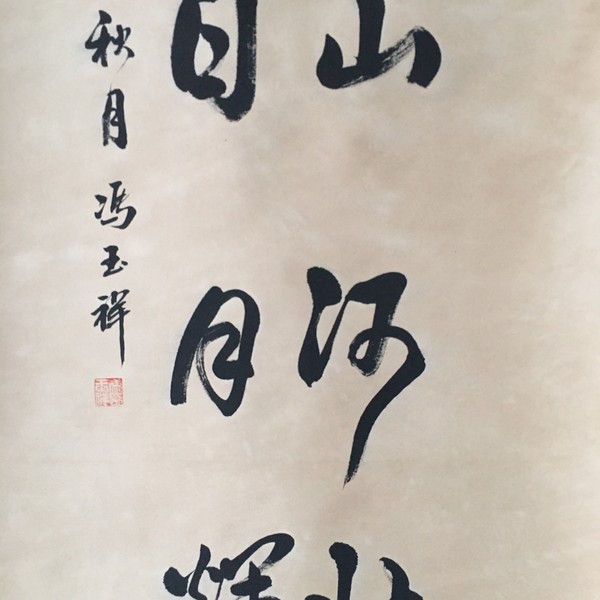 山河
日月輝
秋月 馮玉祥